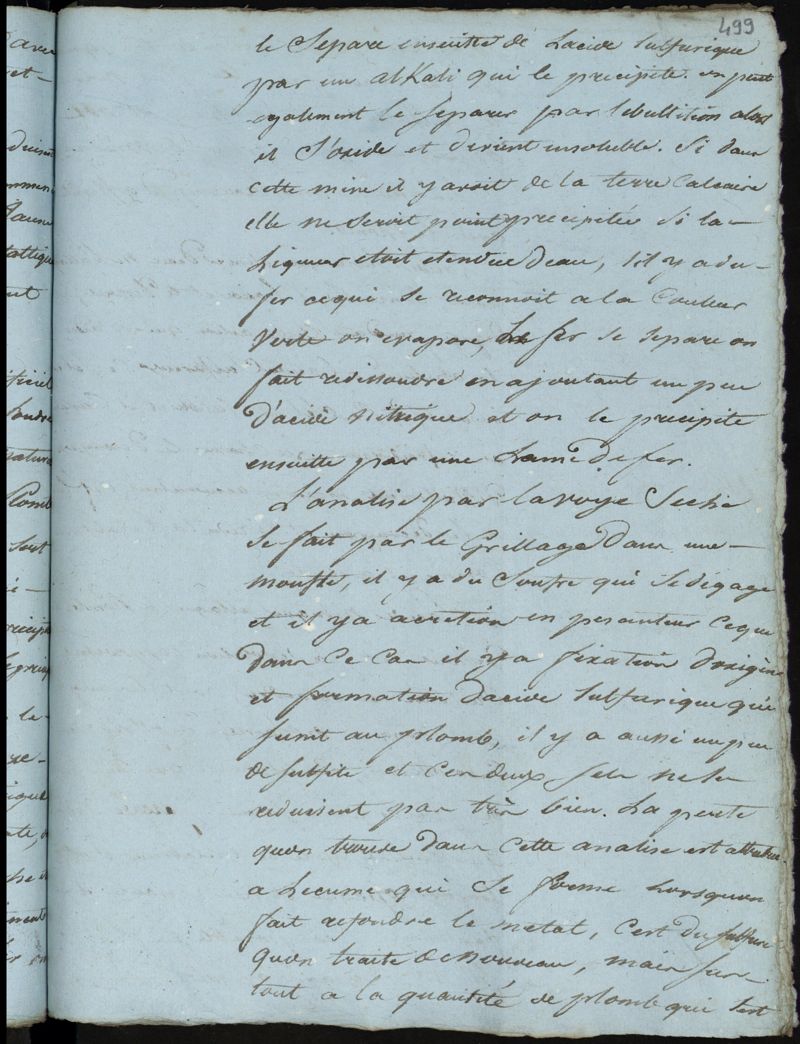 499
le Separe ensuitte de Lacide Sulfurique
par un alKali qui le precipite. on peut
egalement le separer par lebullition alors
il S'oxide et devient insoluble. Si dans
cette mine il y avoit de la terre Calcaire
elle ne Seroit point precipitée si la
Liqueur etoit etendue Deau, S'il y a du
fer ce qui se reconnoit a la Couleur
Verte on evapore, Le fer se separe on
fait redissoudre en ajoutant un peu
D'acide nitrique et on le precipite
ensuitte par une Lame De fer.
L'analise par la voye Seche
Se fait par le Grillage Dans une
moufle, il y a du Soufre qui Se dégage
et il y a acretion en pesanteur ceque
Dans ce Cas il y a fixation Doxigine
et formation Dacide Sulfurique qui
Sunit au plomb, il y a aussi un peu
de Sulfite et Ces deux Sels ne se
reduisent pas très bien. La perte
quon trouve dans cette analise est attribuée
a Lecume qui Se forme Lorsquon
fait refondre le metal, C'est Du Sulfure
quon traite de Nouveau, mais Sur-
tout a la quantité de plomb qui Sest